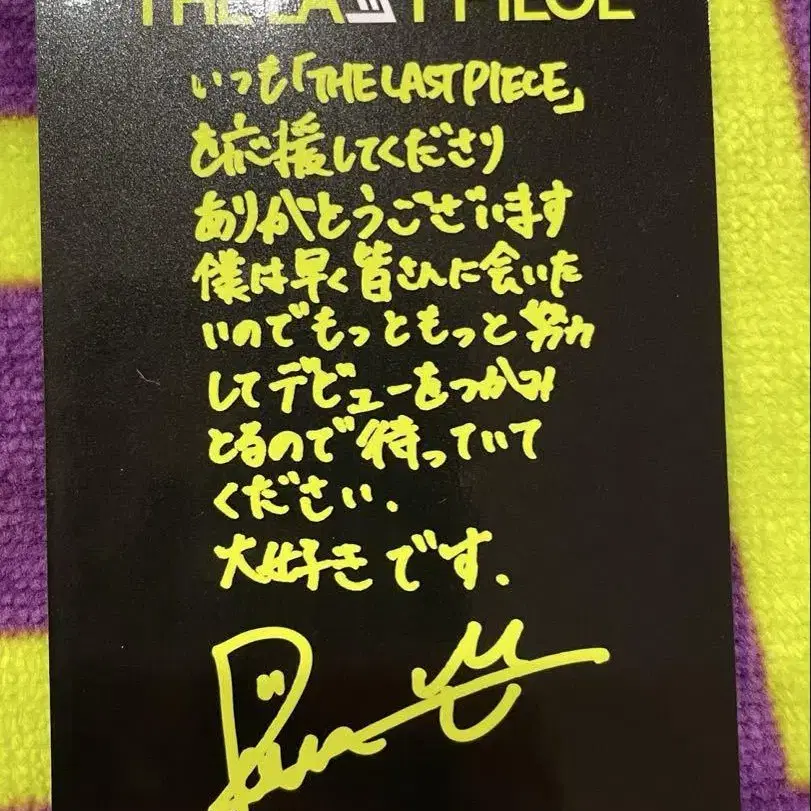 THE LAST PIECE
いつも「THE LAST PIECE」
を応援してくださり
ありがとうございます
僕は早く皆さんに会いた
いのでもっともっと努力
してデビューをつかみ
とるので待っていて
ください.
大好きです.